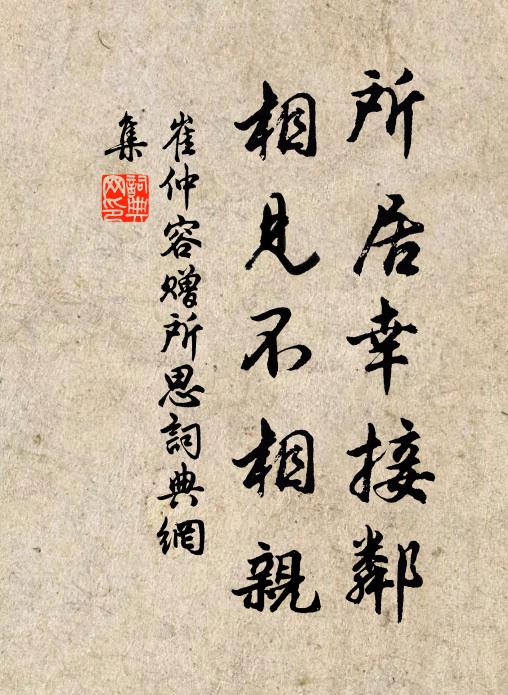 所居幸接鄰
相見不相親
崔仲容贈所思詞典網
集
詞典网印